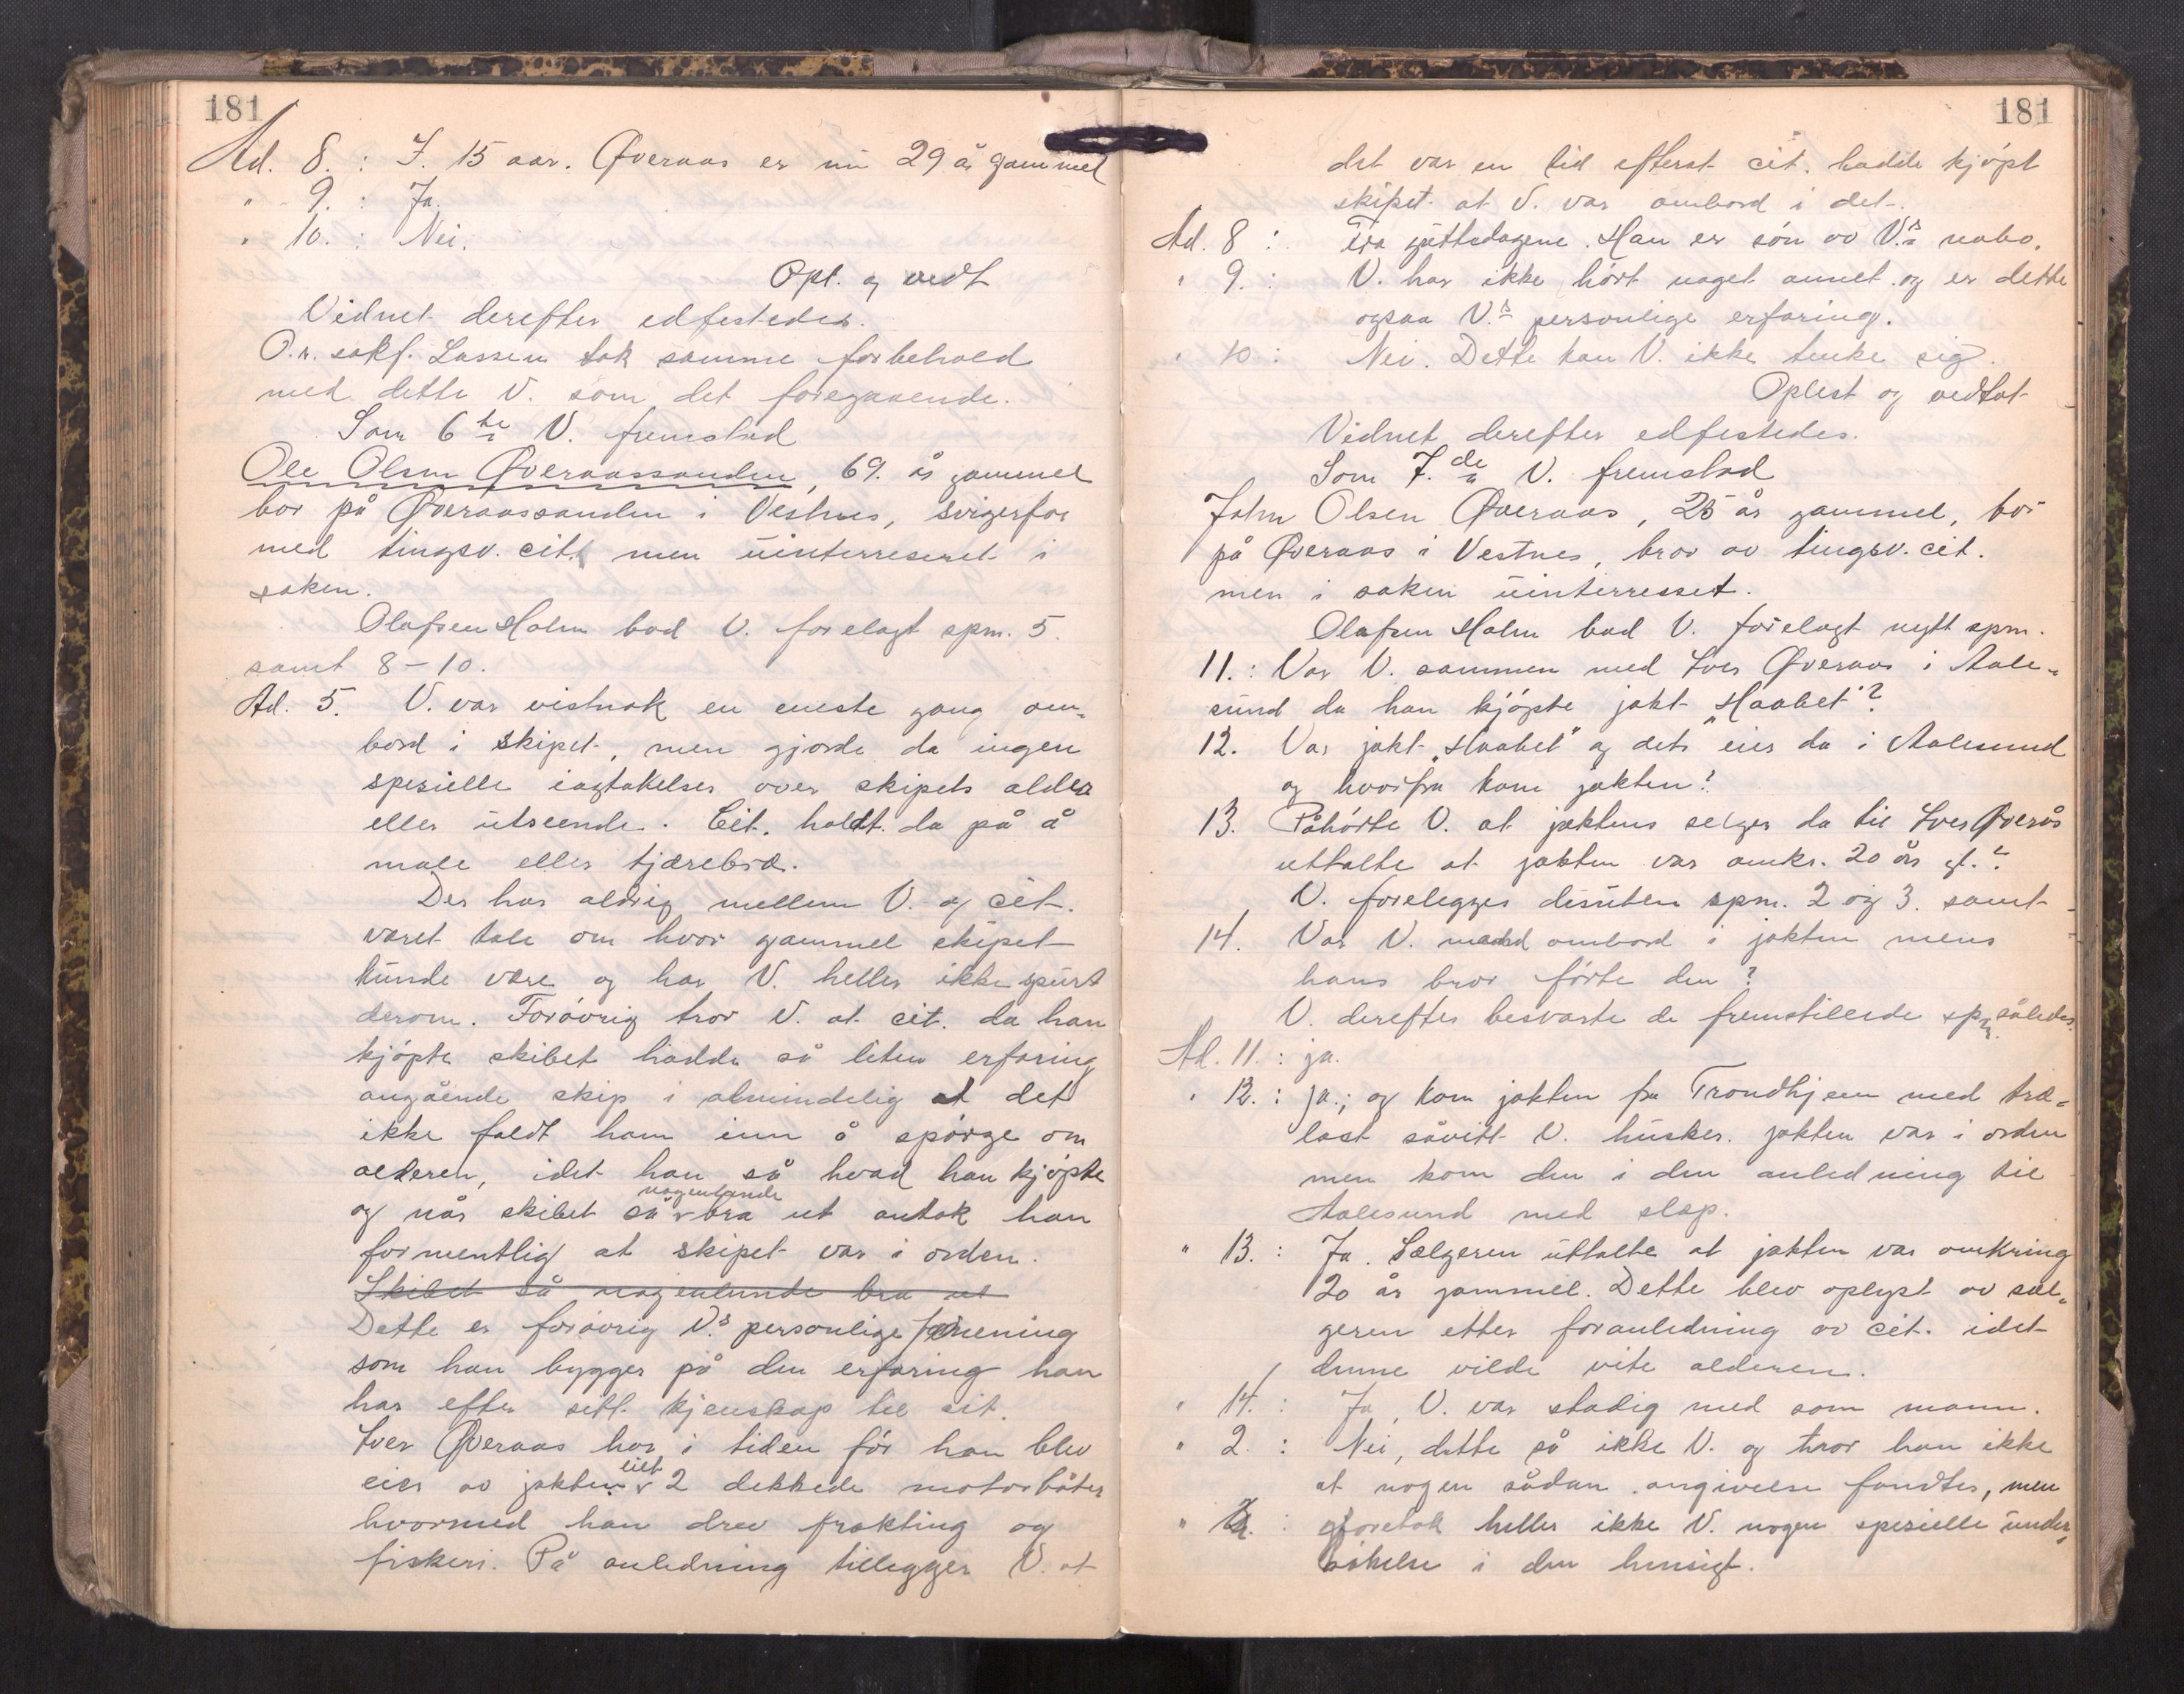 181
Ad. 8. : I. 15 aar. Øveraas er nu 29 år gammel
" 9. : Ja.
" 10. : Nei.
Opl. og vedt
Vidnet derefter edfestedes.
O.r. sakf. Lassen tok samme forbehold
med dette V. som det foregaaende.
Som 6te V. fremstod
Ole Olsen Øveraassanden, 69. år gammel
bor på Øveraassanden i Vestnes, svigerfar
med tingsv. cit. men uinterreseret i
saken.
Olafsen Holm bad V. forelagt spm. 5.
samt 8-10.
Ad. 5. V. var vistnok en eneste gang om-
bord i skipet, men gjorde da ingen
spesielle iagtakelser over skipets alder
eller utseende. Cit. holdt da på å
male eller tjærebræ.
Der har aldrig mellem V. og cit.
været tale om hvor gammel skipet
kunde være og har V. heller ikke spurt
derom. Forøvrig tror V. at cit. da han
kjøpte skibet hadde så liten erfaring
angående skip i almindelig at det
ikke faldt ham inn å spørge om
alderen, idet han så hvad han kjøpte
og når skibet så nogenlunde bra ut antok han
formentlig at skipet var i orden.
Skibet så nogenlunde bra ut
Dette er forøvrig V.s personlige mening
som han bygger på den erfaring han
har efter sitt kjenskap til cit.
Iver Øveraas har i tiden før han blev
eier av jakten eiet 2 dekkede motorbåter
hvormed han drev frakting og
fiskeri. På anledning tillegger V. at
181
det var en tid efterat cit. hadde kjøpt
skipet at V. var ombord i det.
Ad. 8 : Fra guttedagene. Han er søn av V.s nabo.
" 9. : V. har ikke hørt noget annet og er dette
ogsaa V.s personlige erfaring.
" 10 : Nei. Dette kan V. ikke tenke sig.
Oplest og vedtat
Vidnet derefter edfestedes.
Som 7.de V. fremstod
John Olsen Øveraas, 25 år gammel, bor
på Øveraas i Vestnes, bror av tingsv. cit.
men i saken uinterresset.
Olafsen Holm bad V. forelagt nytt spm.
11. : Var V. sammen med Iver Øveraas i Aale-
sund da han kjøpte jakt "Haabet"?
12. Var jakt "Haabet" og dets eier da i Aalesund
og hvorfra kom jakten?
13. Påhørte V. at jaktens selger da til Iver Øverås
uttalte at jakten var omkr. 20 år gl.?
V. forelegges desuten spm. 2 og 3. samt
14. Var V. med ombord i jakten mens
hans bror førte den?
V. derefter besvarte de fremstillede spm således.
Ad. 11. : ja.
" 12. : ja.; og kom jakten fra Trondhjem med træ-
last såvitt V. husker. jakten var i orden
men kom den i den anledning til
Aalesund med slæp.
" 13. : Ja. Sælgeren uttalte at jakten var omkring
20 år gammel. Dette blev oplyst av sæl-
geren etter foranledning av cit. idet
denne vilde vite alderen.
" 14. : Ja, V. var stadig med som mann.
" 2. : Nei, dette så ikke V. og tror han ikke
at nogen sådan angivelse fandtes, men
" : foretok heller ikke V. nogen spesielle under-
søkelse i den hensigt.